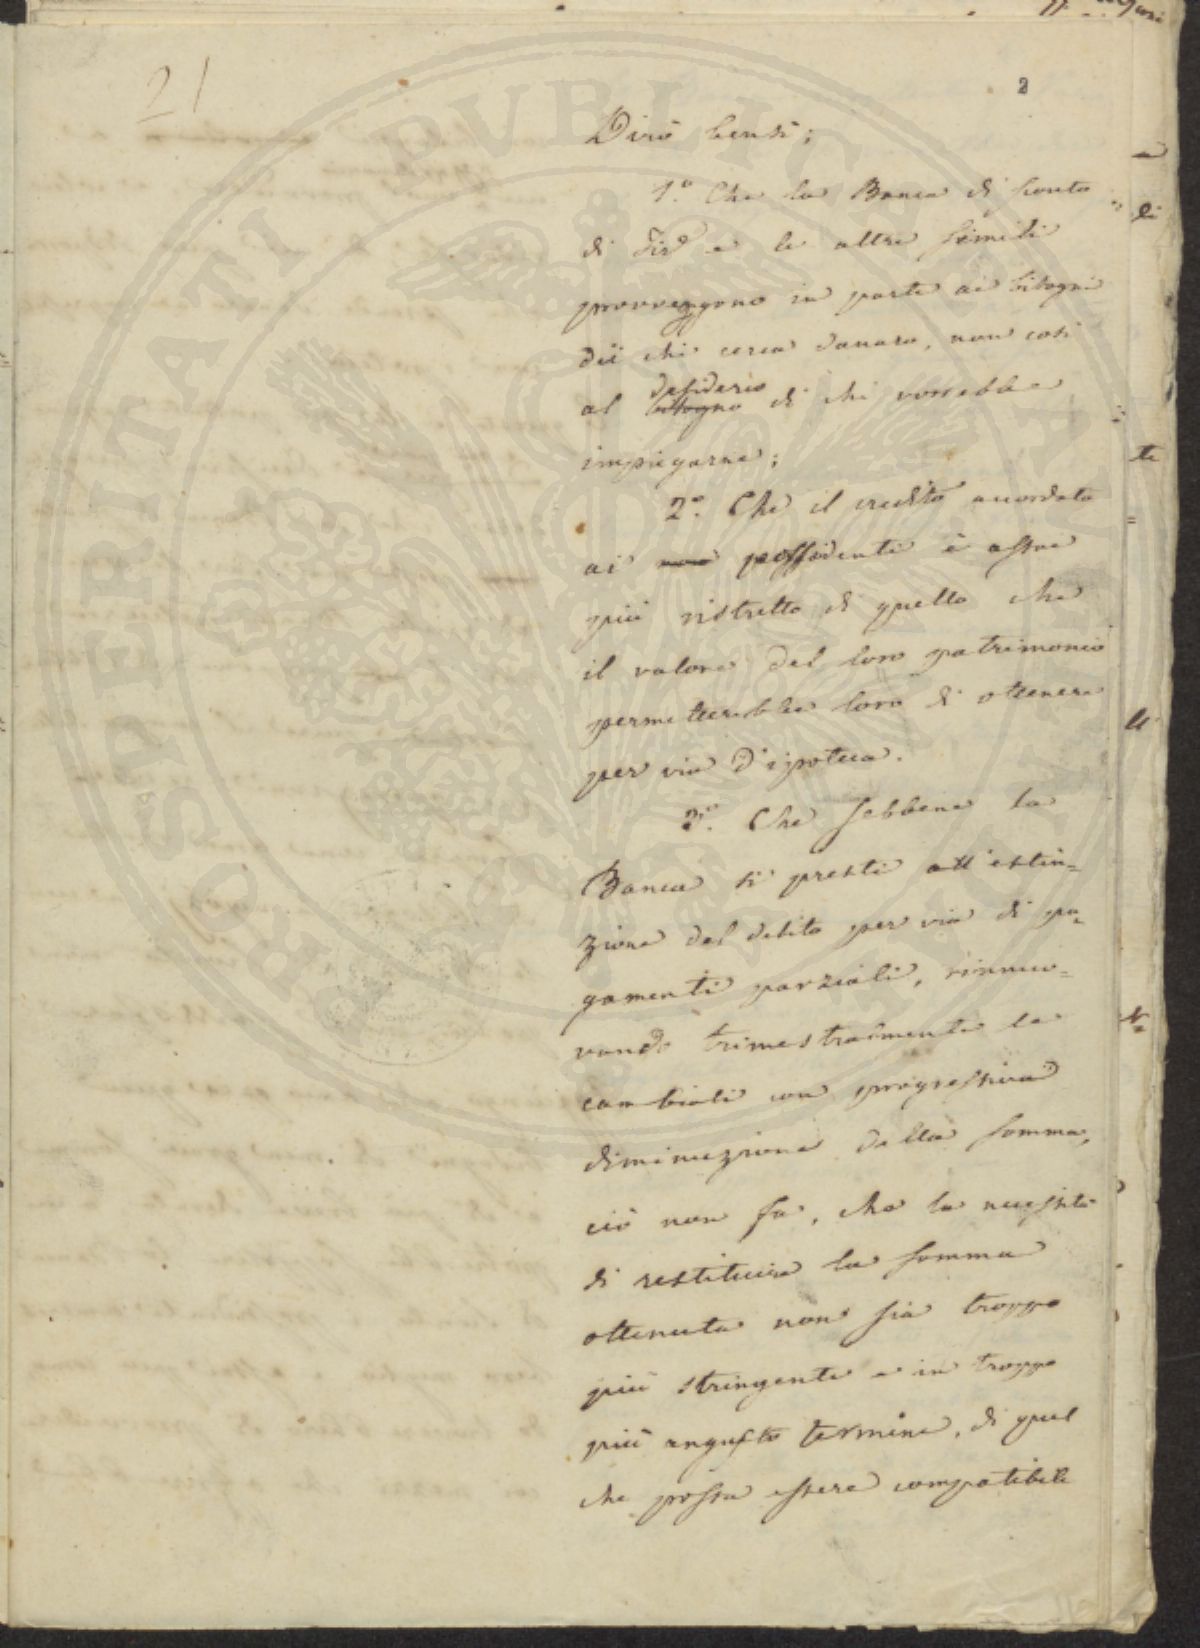 21
2
Dirò bensì;
1.º Che la Banca di sconto
di Firᵉ e le altre simili
provveggono in parte ai bisogni
di chi cerca danaro, non così
al desiderio bisogno di chi vorrebbe
impiegarne;
2.º Che il credito accordato
ai possidenti è assai
più ristretto di quello che
il valore del loro patrimonio
permetterebbe loro di ottenere
per via d'ipoteca.
3.º Che sebbene la
Banca si presti all'estin=
zione del debito per via di pa=
gamenti parziali, rinnuo=
vando trimestralmente le
cambiali con progressiva
diminuzione della somma,
ciò non fa, che la necessità
di restituire la somma
ottenuta non sia troppo
più stringente e in troppo
più angusto termine, di quel
che possa essere compatibile
PROSPERITATI PVBLICAE